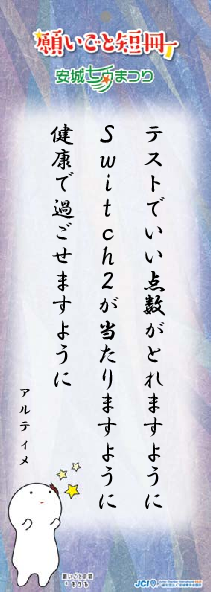 願いごと短冊
安城七夕まつり
テストでいい点数がとれますように
Switch2が当たりますように
健康で過ごせますように
アルティメ
願いごと短冊
JCI